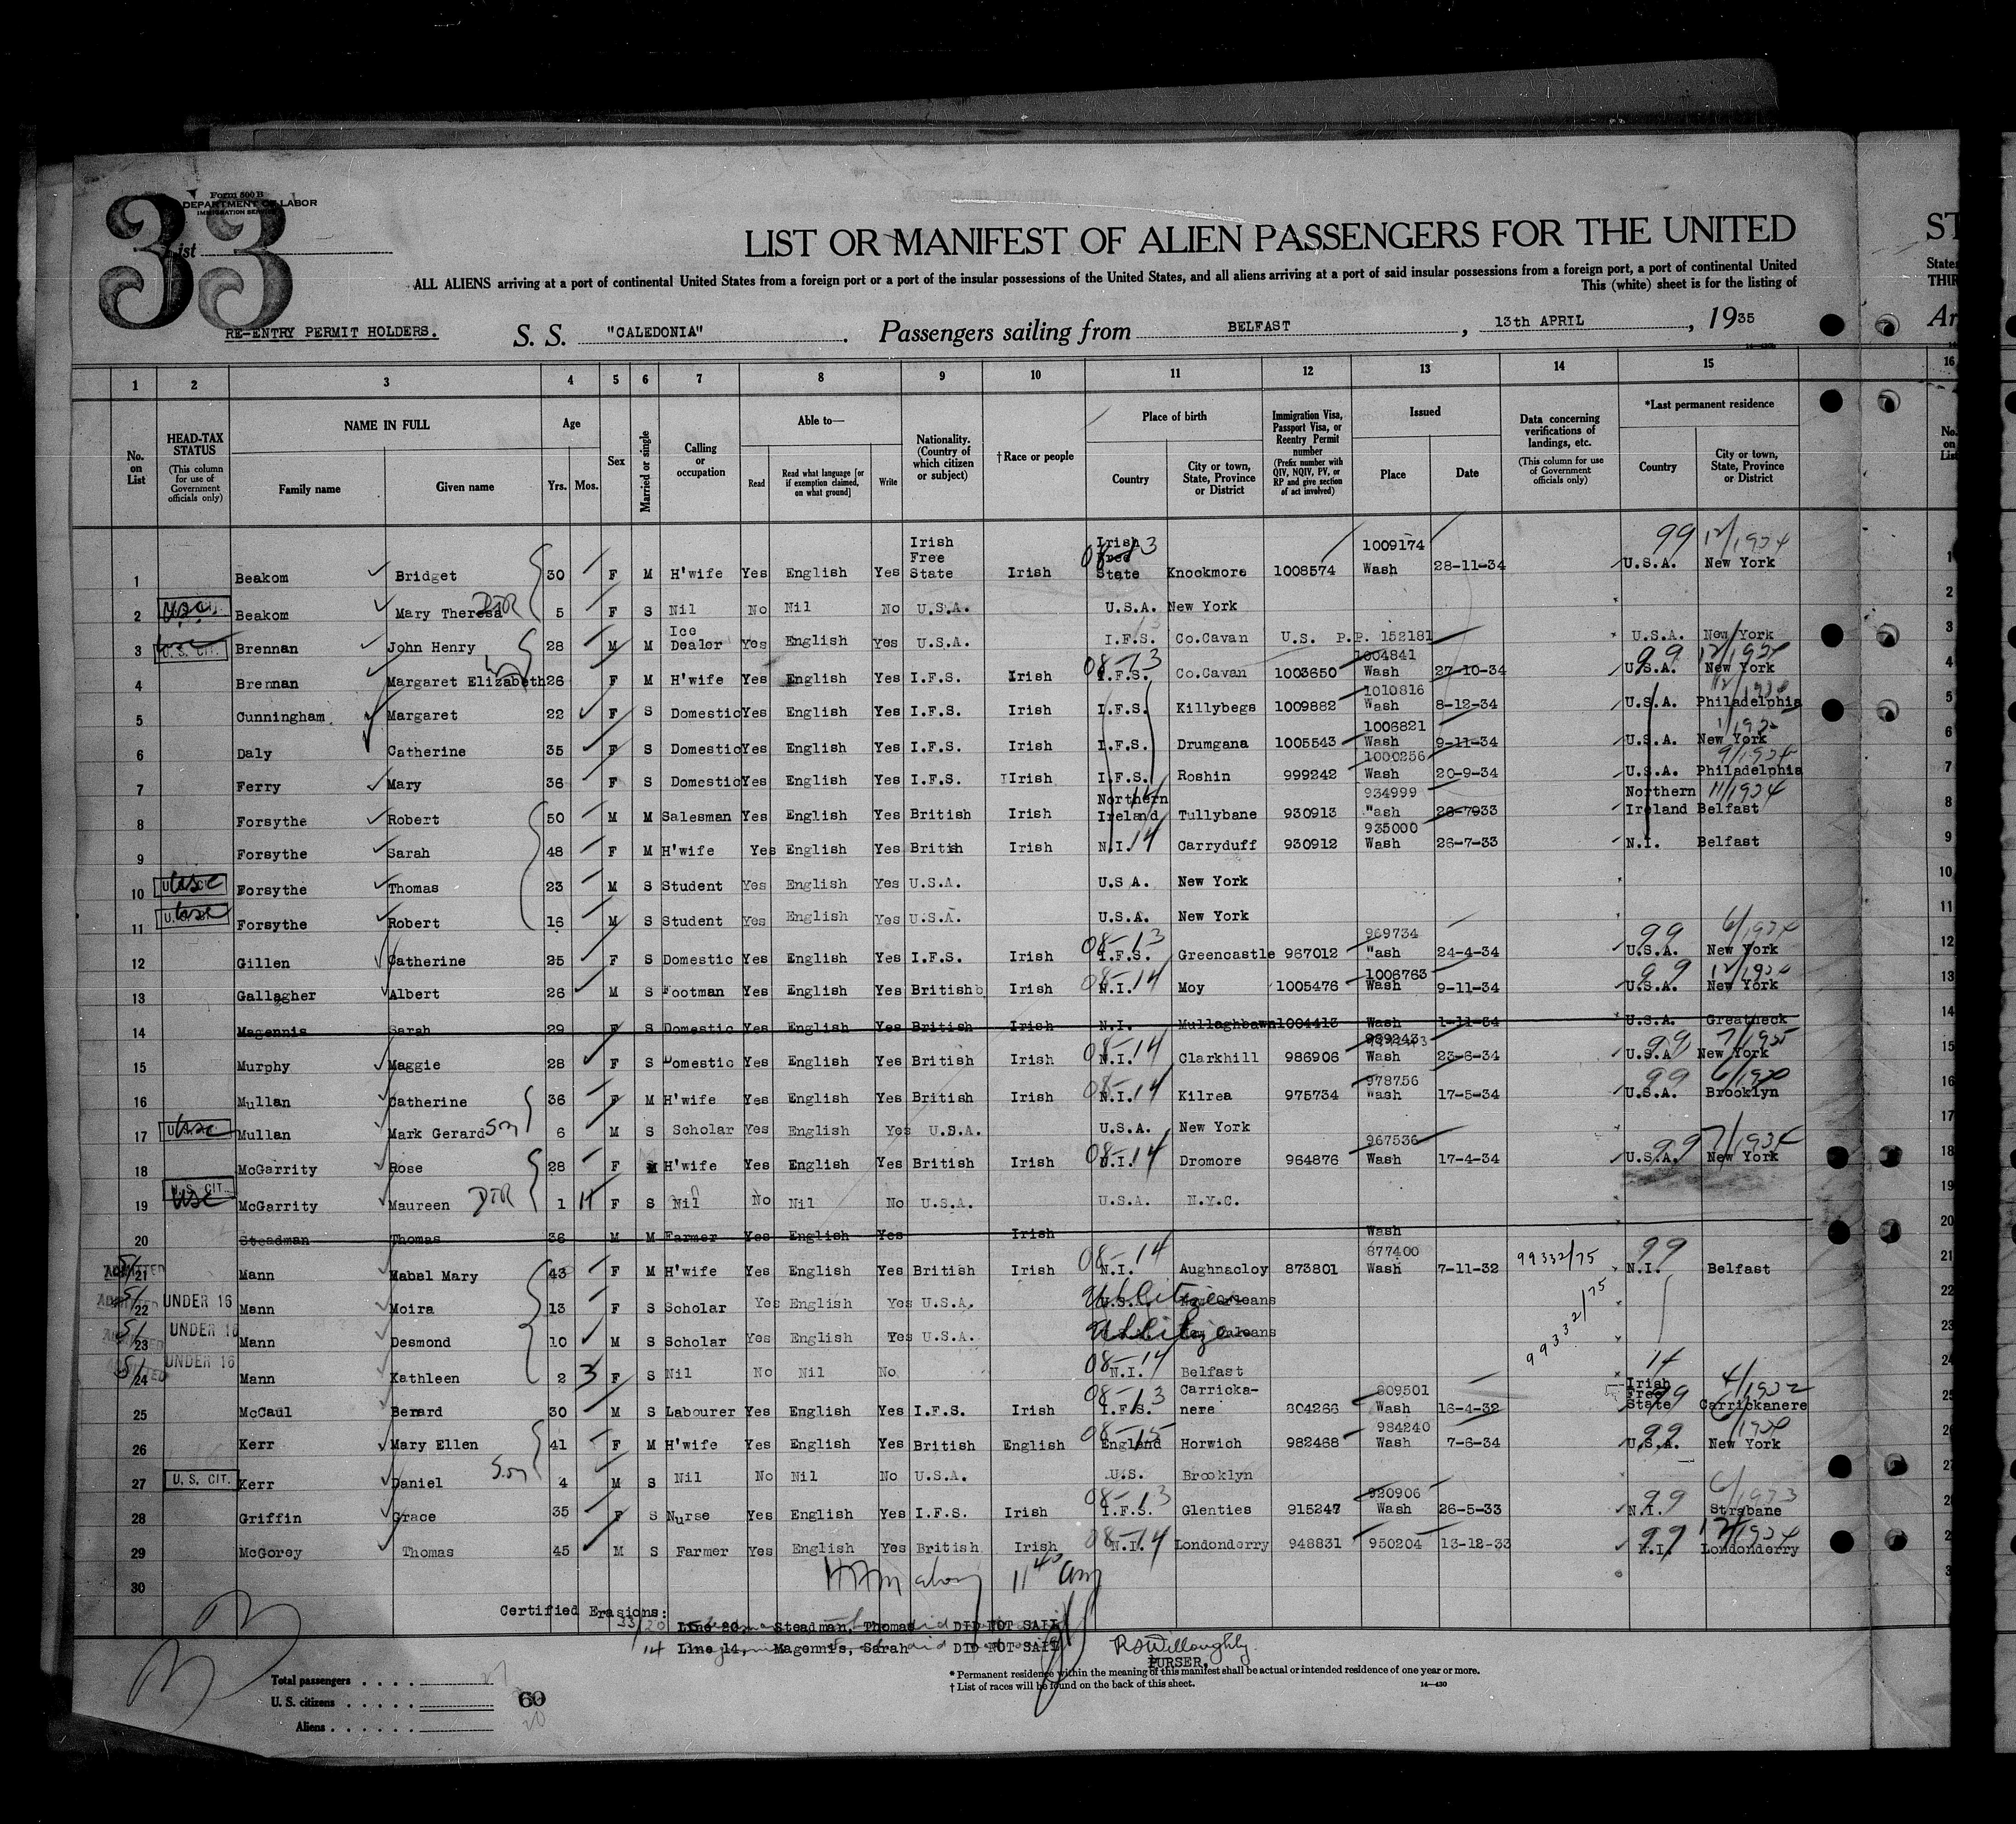 33
Form 500 B
DEPARTMENT OF LABOR
IMMIGRATION SERVICE
List
LIST OR MANIFEST OF ALIEN PASSENGERS FOR THE UNITED
ST
ALL ALIENS arriving at a port of continental United States from a foreign port or a port of the insular possessions of the United States, and all aliens arriving at a port of said insular possessions from a foreign port, a port of continental United
This (white) sheet is for the listing of
RE-ENTRY PERMIT HOLDERS.
S. S. "CALEDONIA". Passengers sailing from BELFAST, 13th APRIL, 1935
1 2 3 4 5 6 7 8 9 10 11 12 13 14 15 16
No. on List
HEAD-TAX STATUS (This column for use of Government officials only)
NAME IN FULL Family name Given name
Age Yrs. Mos.
Sex
Married or single
Calling or occupation
Able to— Read Read what language [or if exemption claimed, on what ground] Write
Nationality. (Country of which citizen or subject)
†Race or people
Place of birth Country City or town, State, Province or District
Immigration Visa, Passport Visa, or Reentry Permit number (Prefix number with QIV, NQIV, PV, or RP and give section of act involved)
Issued Place Date
Data concerning verifications of landings, etc. (This column for use of Government officials only)
*Last permanent residence Country City or town, State, Province or District
1 Beakom Bridget 30 F M H'wife Yes English Yes Irish Free State Irish 08-13 Irish Free State Knockmore 1008574 1009174 Wash 28-11-34 99 12/1934 U.S.A. New York
2 Beakom Mary Theresa DTR 5 F S Nil No Nil No U.S.A. U.S.A. New York
3 U.S. CIT. Brennan John Henry 28 M M Ice Dealer Yes English Yes U.S.A. I.F.S. Co.Cavan U.S. P.P. 152181 U.S.A. New York
4 Brennan Margaret Elizabeth 26 F M H'wife Yes English Yes I.F.S. Irish 08-13 I.F.S. Co.Cavan 1003650 1004841 Wash 27-10-34 99 12/1934 U.S.A. New York
5 Cunningham Margaret 22 F S Domestic Yes English Yes I.F.S. Irish I.F.S. Killybegs 1009882 1010816 Wash 8-12-34 U.S.A. Philadelphia
6 Daly Catherine 35 F S Domestic Yes English Yes I.F.S. Irish I.F.S. Drumgana 1005543 1006821 Wash 9-11-34 U.S.A. New York
7 Ferry Mary 36 F S Domestic Yes English Yes I.F.S. Irish I.F.S. Roshin 999242 1000256 Wash 20-9-34 9/1934 U.S.A. Philadelphia
8 Forsythe Robert 50 M M Salesman Yes English Yes British Irish Northern Ireland 14 Tullybane 930913 934999 Wash 26-7933 11/1934 Northern Ireland Belfast
9 Forsythe Sarah 48 F M H'wife Yes English Yes British Irish N.I. 14 Carryduff 930912 935000 Wash 26-7-33 N.I. Belfast
10 USC Forsythe Thomas 23 M S Student Yes English Yes U.S.A. U.S A. New York
11 USC Forsythe Robert 16 M S Student Yes English Yes U.S.A. U.S.A. New York
12 Gillen Catherine 25 F S Domestic Yes English Yes I.F.S. Irish 08-13 I.F.S. Greencastle 967012 969734 Wash 24-4-34 99 6/1934 U.S.A. New York
13 Gallagher Albert 26 M S Footman Yes English Yes British Irish 08-14 N.I. Moy 1005476 1006763 Wash 9-11-34 99 12/1934 U.S.A. New York
14 Magennis Sarah 29 F S Domestic Yes English Yes British Irish N.I. Mullaghbawn 1004413 Wash 1-11-34 U.S.A. Greatneck
15 Murphy Maggie 28 F S Domestic Yes English Yes British Irish 08-14 N.I. Clarkhill 986906 Wash 23-6-34 99 U.S.A New York
16 Mullan Catherine 36 F M H'wife Yes English Yes British Irish 08-14 N.I. Kilrea 975734 978756 Wash 17-5-34 99 U.S.A. Brooklyn
17 USC Mullan Mark Gerard Son 6 M S Scholar Yes English Yes U.S.A. U.S.A. New York
18 McGarrity Rose 28 F M H'wife Yes English Yes British Irish 08-14 N.I. Dromore 964876 967536 Wash 17-4-34 99 7/1934 U.S.A. New York
19 U.S. CIT. USC McGarrity Maureen DTR 1 11 F S Nil No Nil No U.S.A. U.S.A. N.Y.C.
20 Steadman Thomas 36 M M Farmer Yes English Yes Irish Wash
21 ADMITTED Mann Mabel Mary 43 F M H'wife Yes English Yes British Irish 08-14 N.I. Aughnacloy 873801 877400 Wash 7-11-32 99332/75 99 N.I. Belfast
22 ADMITTED UNDER 16 Mann Moira 13 F S Scholar Yes English Yes U.S.A. U.S.A. New Orleans
23 ADMITTED UNDER 16 Mann Desmond 10 M S Scholar Yes English Yes U.S.A. New Orleans 99332/75
24 ADMITTED UNDER 16 Mann Kathleen 2 3 F S Nil No Nil No 08-14 N.I. Belfast 14
25 McCaul Benard 30 M S Labourer Yes English Yes I.F.S. Irish 08-13 I.F.S. Carricka-nere 804266 809501 Wash 16-4-32 99 4/1932 Irish Free State Carrickanere
26 Kerr Mary Ellen 41 F M H'wife Yes English Yes British English 08-15 England Horwich 982468 984240 Wash 7-6-34 99 U.S.A. New York
27 U. S. CIT. Kerr Daniel Son 4 M S Nil No Nil No U.S.A. U.S. Brooklyn
28 Griffin Grace 35 F S Nurse Yes English Yes I.F.S. Irish 08-13 I.F.S. Glenties 915247 920906 Wash 26-5-33 99 6/1933 N.I. Strabane
29 McGorey Thomas 45 M S Farmer Yes English Yes British Irish 08-14 N.I. Londonderry 948831 950204 13-12-33 99 12/1934 N.I. Londonderry
30
11 40 am
Certified Erasions:
33/20 Line 20, Steadman, Thomas DID NOT SAIL
14 Line 14, Magennis, Sarah DID NOT SAIL
RSWilloughby
PURSER.
Total passengers
U. S. citizens
Aliens
60
20
* Permanent residence within the meaning of this manifest shall be actual or intended residence of one year or more.
† List of races will be found on the back of this sheet.
14—430